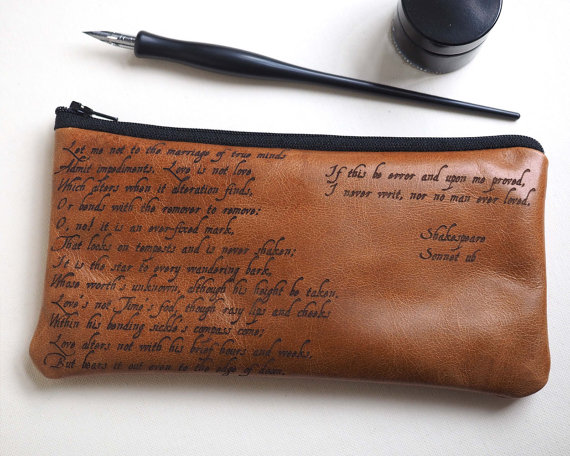 Let me not to the marriage of true minds
Admit impediments. Love is not love
Which alters when it alteration finds,
Or bends with the remover to remove:
O, no! it is an ever-fixed mark,
That looks on tempests and is never shaken;
It is the star to every wandering bark,
Whose worth's unknown, although his height be taken.
Love's not Time's fool, though rosy lips and cheeks
Within his bending sickle's compass come;
Love alters not with his brief hours and weeks,
But bears it out even to the edge of doom.
If this be error and upon me proved,
I never writ, nor no man ever loved.
Shakespeare
Sonnet 116